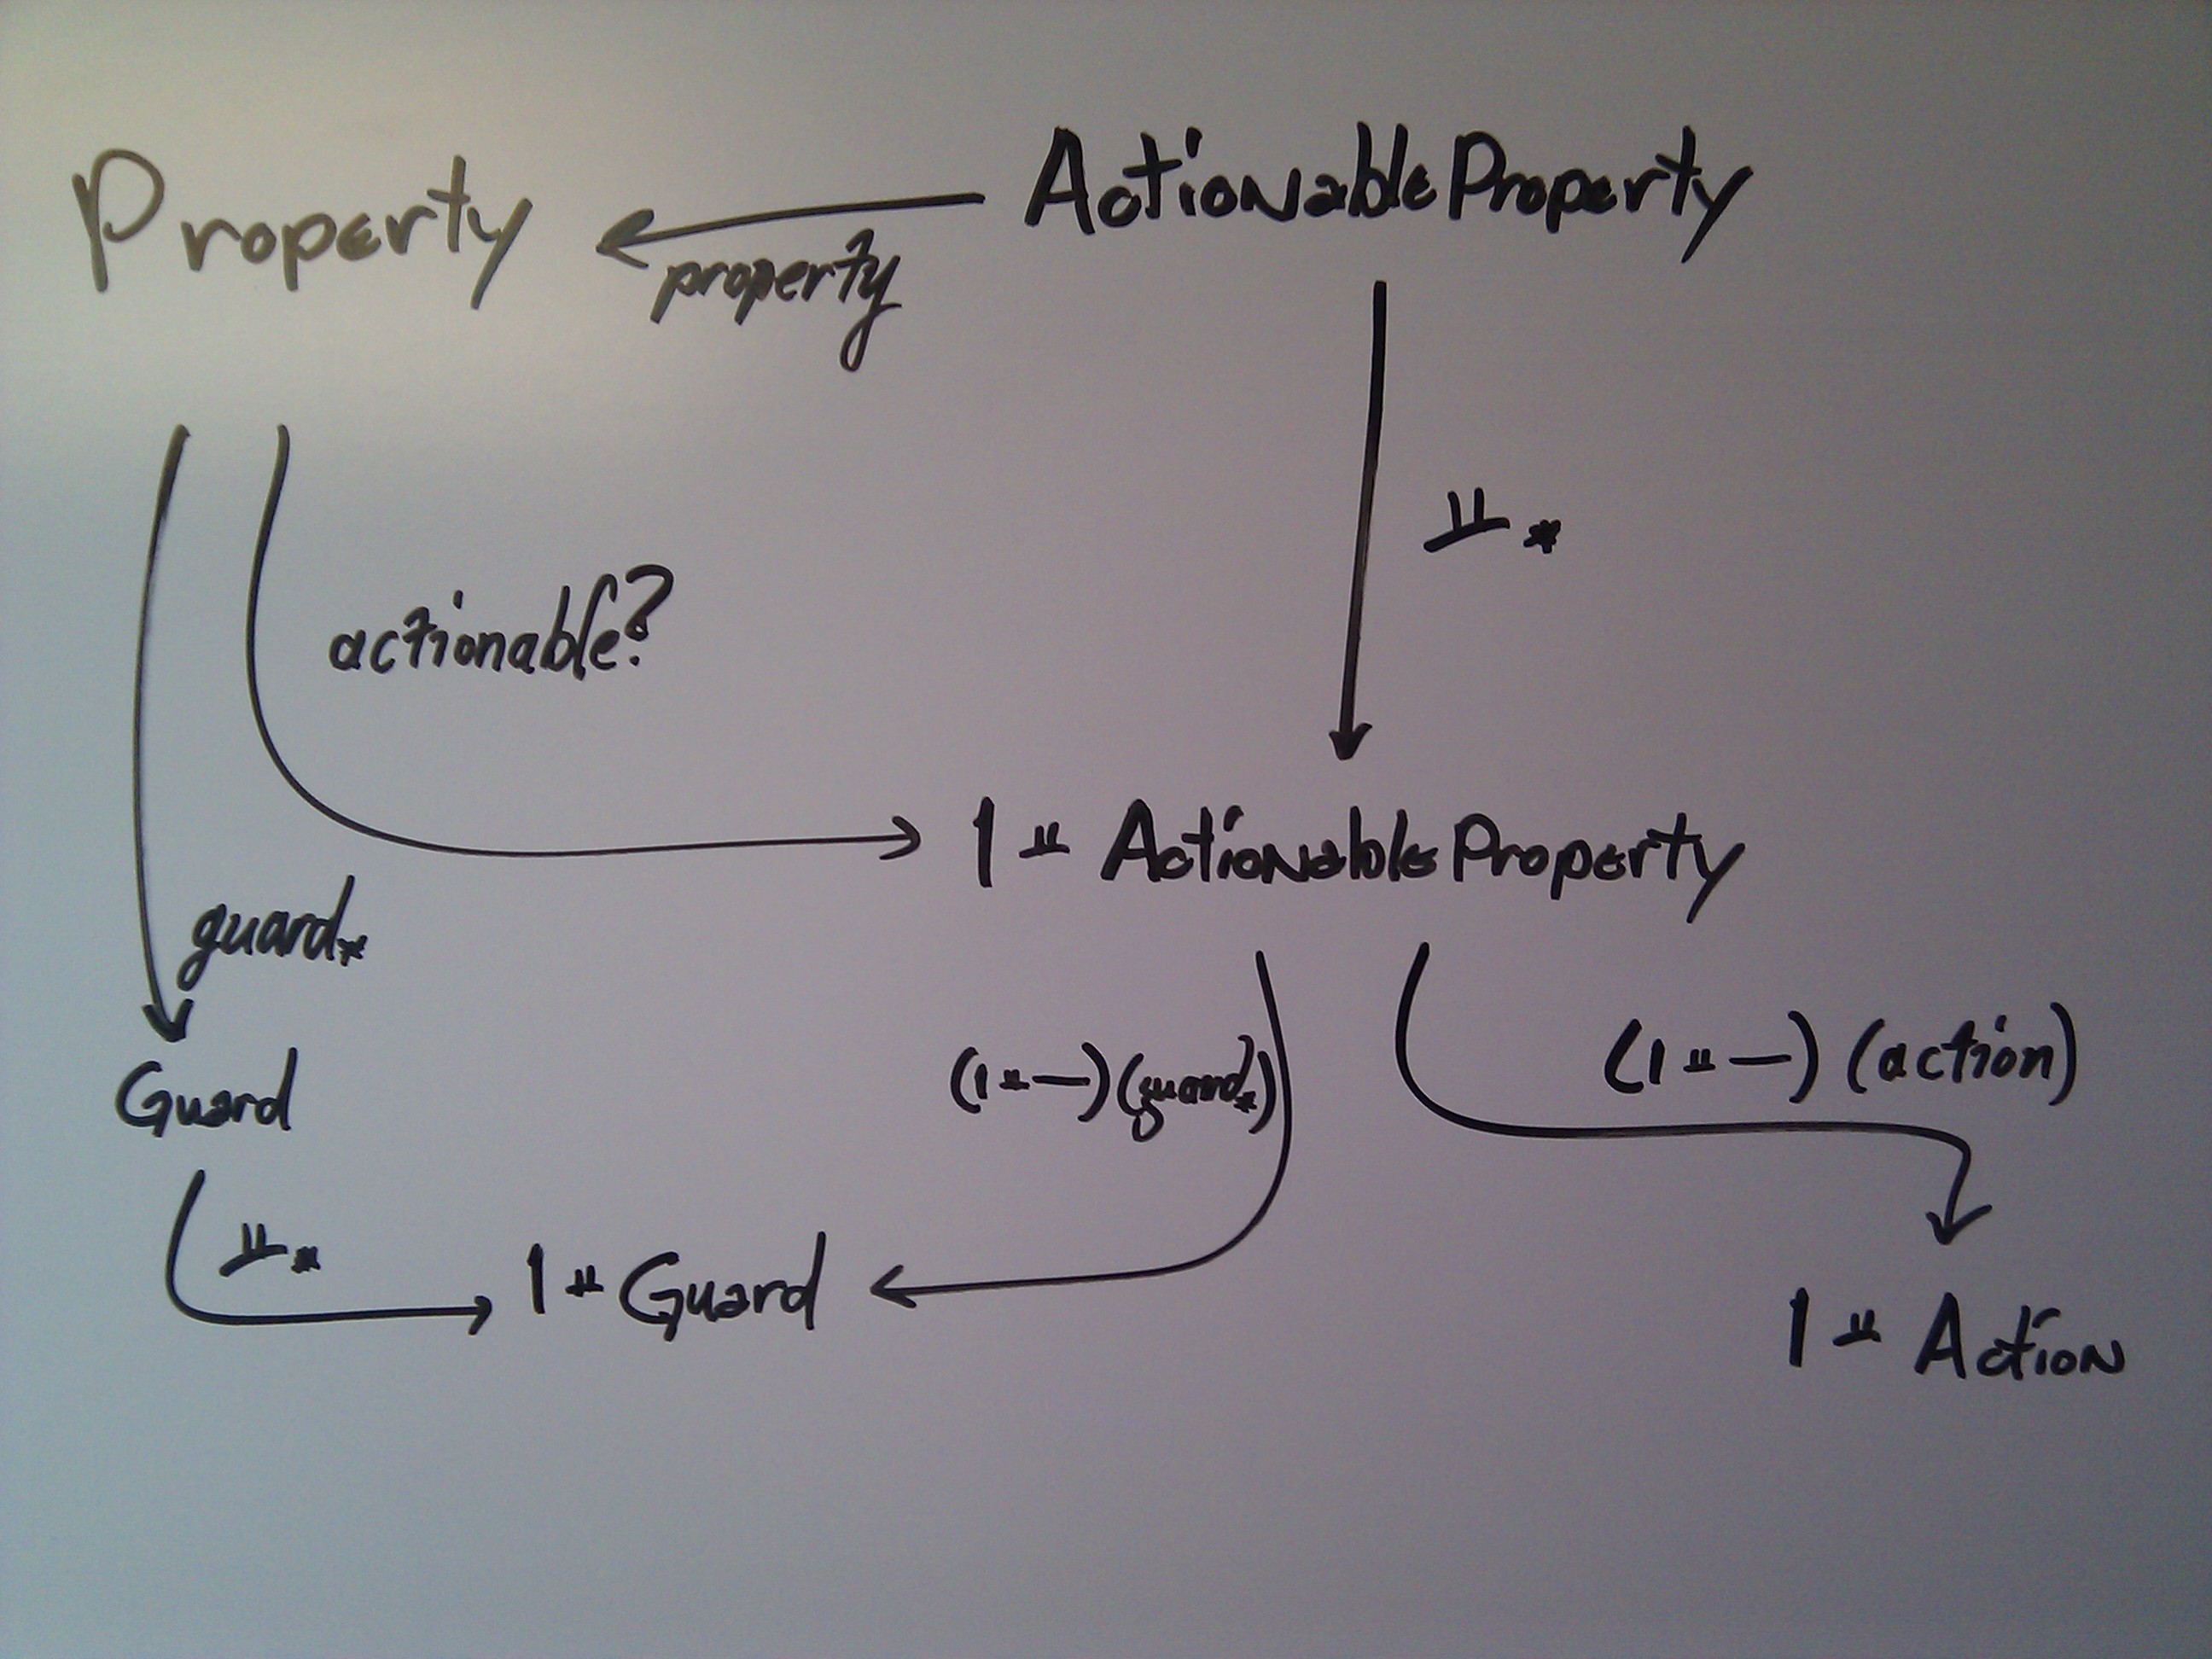 Property
ActionableProperty
property
⫫*
actionable?
1 ⫫ ActionableProperty
guard*
(1 ⫫ —) (guard*)
(1 ⫫ —) (action)
Guard
⫫*
1 ⫫ Guard
1 ⫫ Action